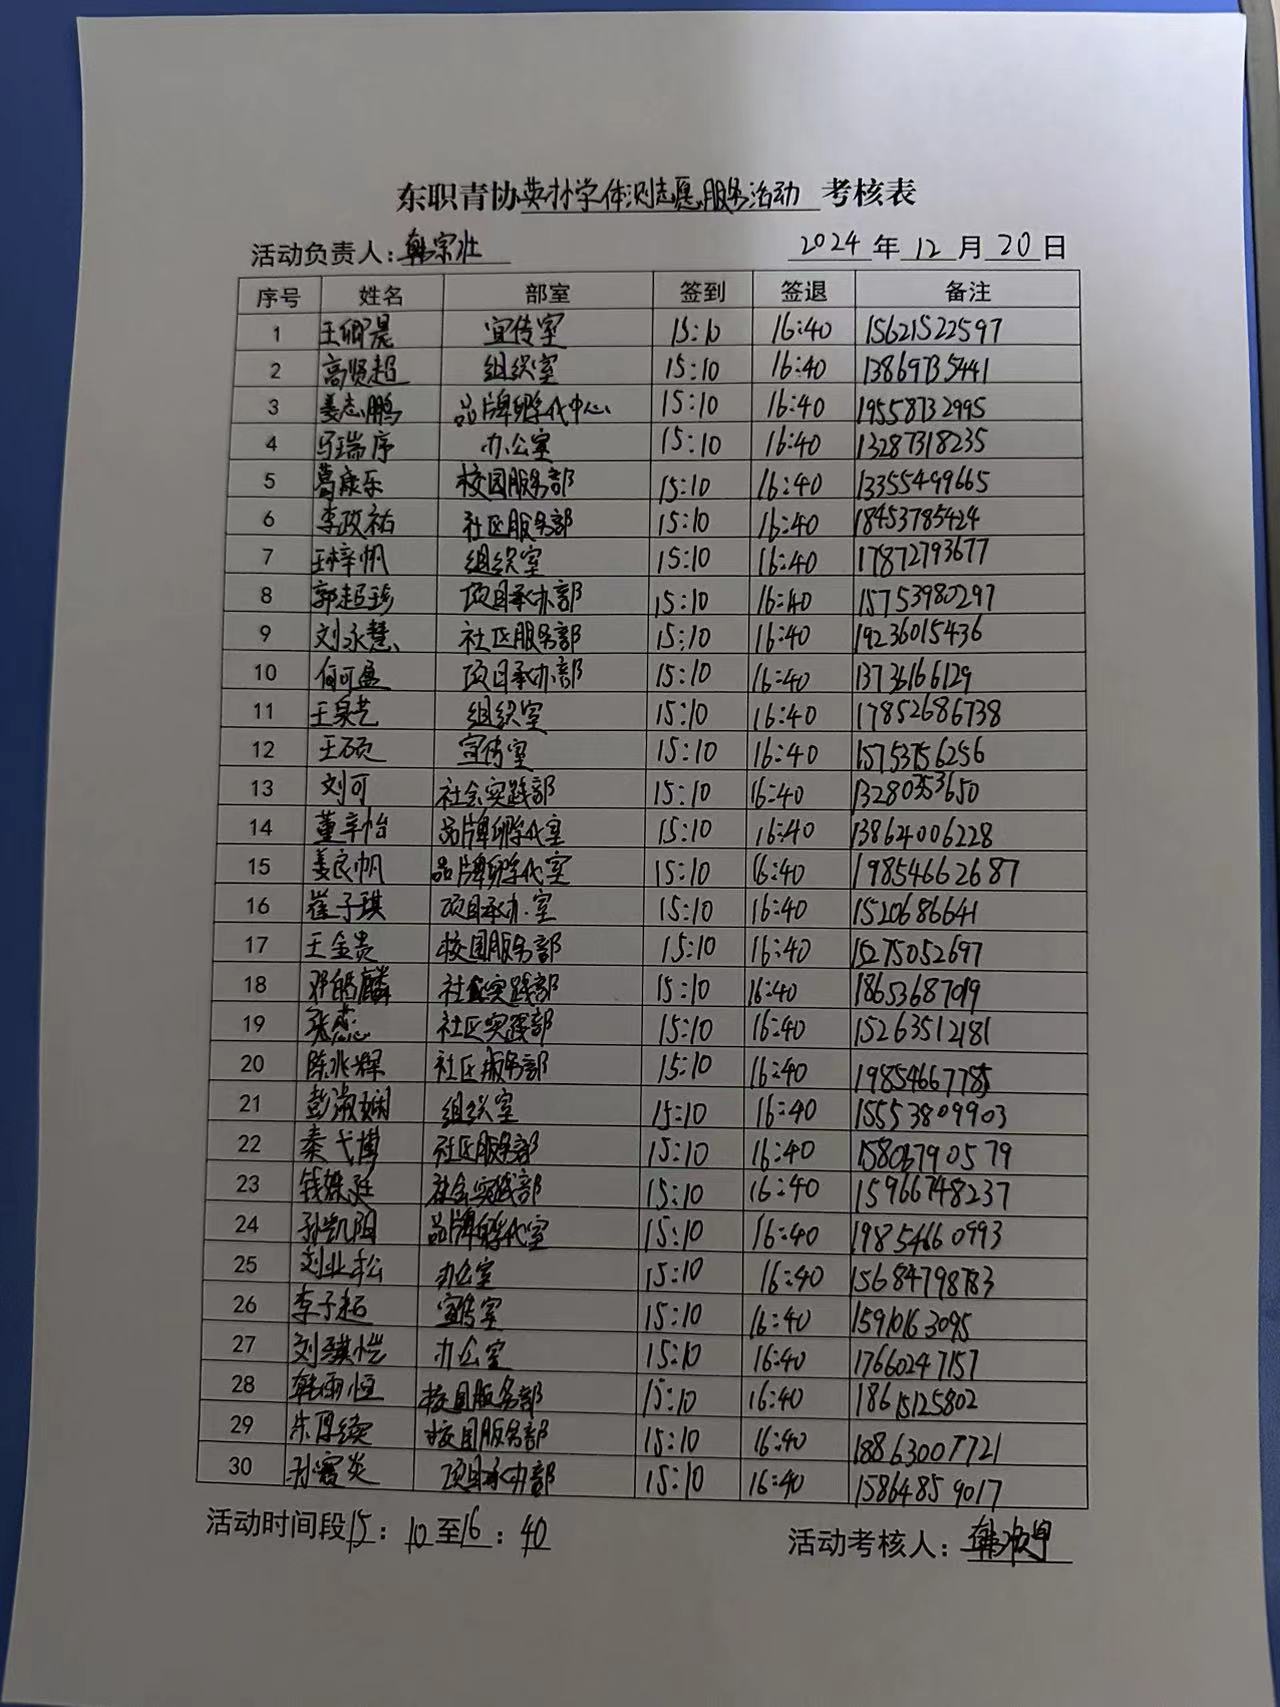 东职青协英才学体测志愿服务活动 考核表
活动负责人：韩宗壮 2024 年 12 月 20 日
序号 姓名 部室 签到 签退 备注
1 王卿晨 宣传室 15:10 16:40 15621522597
2 高贤超 组织室 15:10 16:40 13869735441
3 姜志鹏 品牌孵化中心 15:10 16:40 19558732995
4 马瑞序 办公室 15:10 16:40 13287318235
5 葛康乐 校园服务部 15:10 16:40 13355499665
6 李政祐 社区服务部 15:10 16:40 18453785424
7 王梓帆 组织室 15:10 16:40 17872793677
8 郭超珍 项目承办部 15:10 16:40 15753980297
9 刘永慧 社区服务部 15:10 16:40 19236015436
10 何可盈 项目承办部 15:10 16:40 13736166129
11 王泉艺 组织室 15:10 16:40 17852686738
12 王硕 宣传室 15:10 16:40 15753756256
13 刘可 社会实践部 15:10 16:40 13280353650
14 董辛怡 品牌孵化室 15:10 16:40 13864006228
15 姜良帆 品牌孵化室 15:10 16:40 19854662687
16 崔子琪 项目承办室 15:10 16:40 1520686641
17 王金贵 校园服务部 15:10 16:40 15275052697
18 邓皓麟 社会实践部 15:10 16:40 18653687019
19 张蕊 社区实践部 15:10 16:40 15263512181
20 陈兆辉 社区服务部 15:10 16:40 19854667785
21 彭淑娴 组织室 15:10 16:40 15553809903
22 秦弋博 社区服务部 15:10 16:40 15806790579
23 钱姝廷 社会实践部 15:10 16:40 15966748237
24 孙凯阳 品牌孵化室 15:10 16:40 19854660993
25 刘业松 办公室 15:10 16:40 15684798783
26 李子超 宣传室 15:10 16:40 15910163095
27 刘骐恺 办公室 15:10 16:40 17660247157
28 韩雨恒 校园服务部 15:10 16:40 18615125802
29 朱厚续 校园服务部 15:10 16:40 18863007721
30 孙赛炎 项目承办部 15:10 16:40 15864859017
活动时间段15：10至16：40 活动考核人：韩